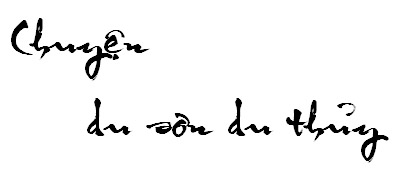 Chuyện
du sơn du thủy